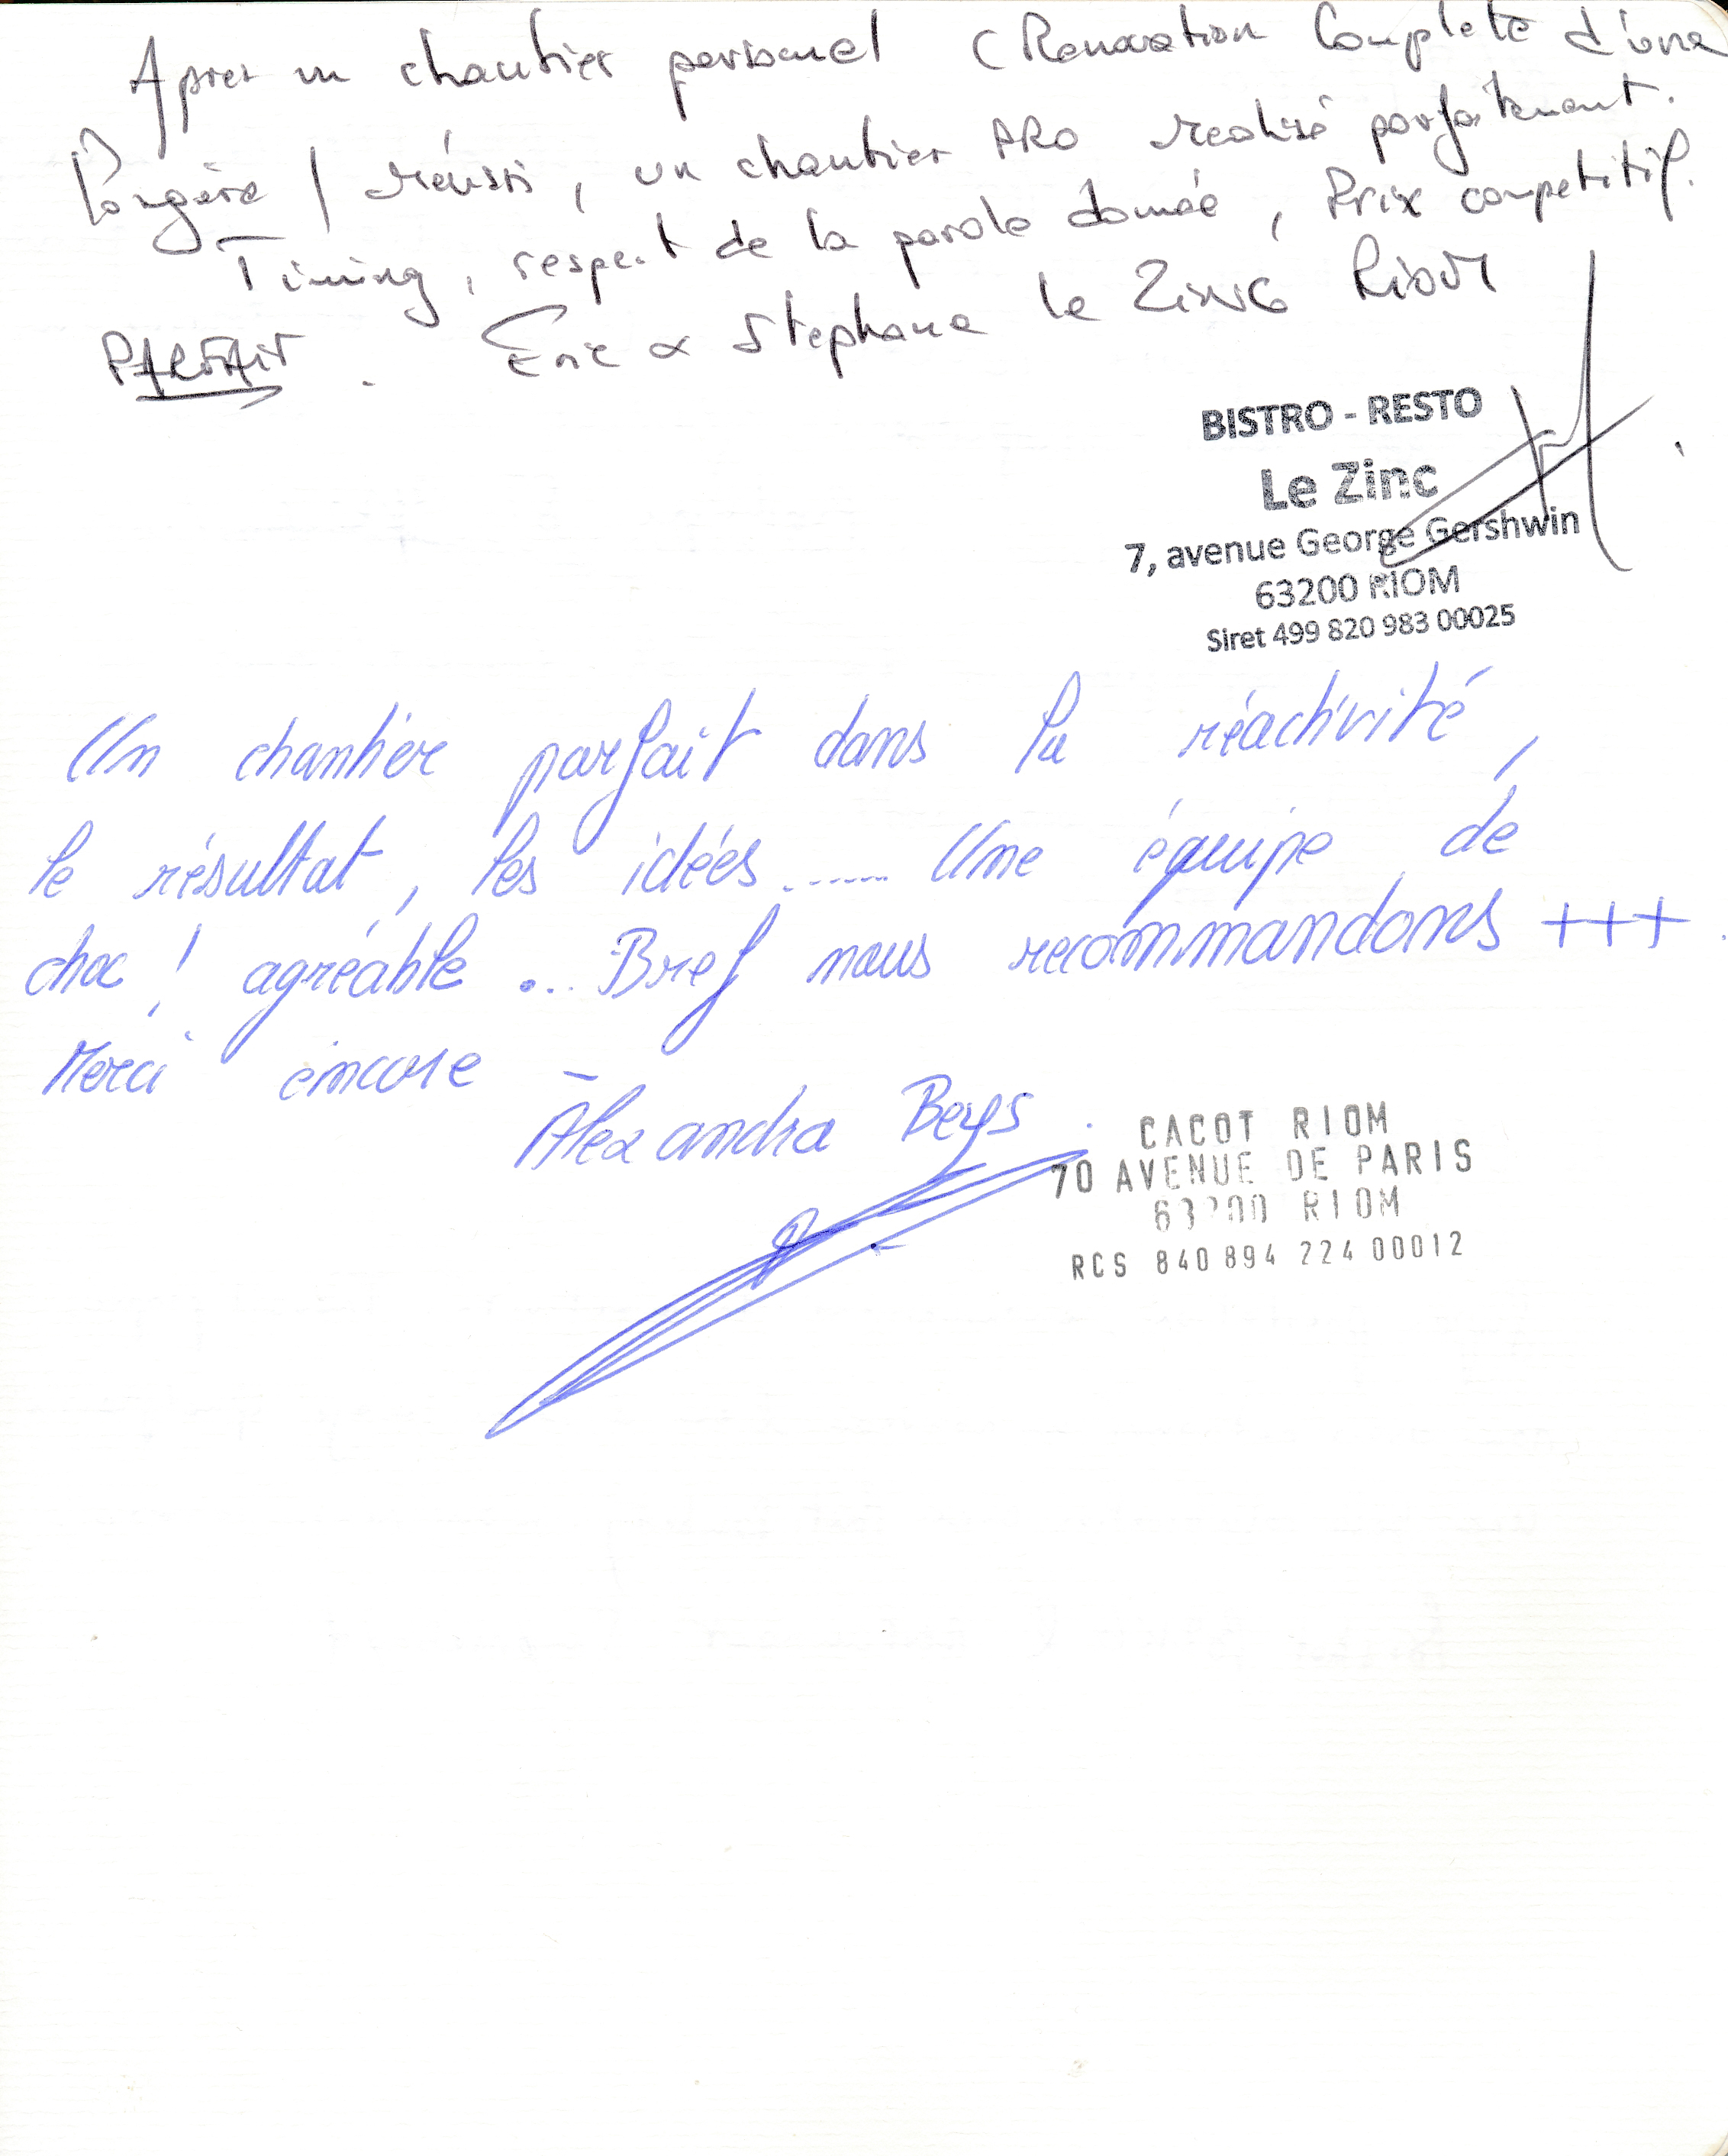 Après un chantier personnel (Renovation Complete d'une
longère) réussi, un chantier PRO realisé parfaitement.
Timing, respect de la parole donnée, Prix competitif.
PARFAIT. Eric & Stephane le ZINC RIOM
BISTRO - RESTO
Le Zinc
7, avenue George Gershwin
63200 RIOM
Siret 499 820 983 00025
Un chantier parfait dans la réactivité,
le résultat, les idées....... Une équipe de
choc ! agréable ... Bref nous recommandons +++.
Merci encore -
Alexandra Beys.
CACOT RIOM
70 AVENUE DE PARIS
63200 RIOM
RCS 840 894 224 00012